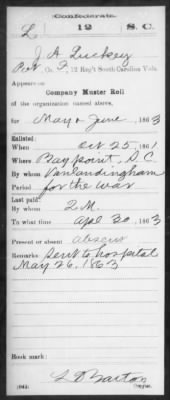 (Confederate.)
L 12 S.C.
J A Lucksey
Pvt, Co. F, 12 Reg't South Carolina Vols.
Appears on
Company Muster Roll
of the organization named above,
for May & June, 1863
Enlisted:
When Oct 25, 1861
Where Bay point, S.C.
By whom Vanlandingham
Period for the war
Last paid:
By whom Q.M.
To what time Apr 30, 1863
Present or absent absent
Remarks: Sent to hospital
May 26, 1863
Book mark:
L D Barton
(642) Copyist.